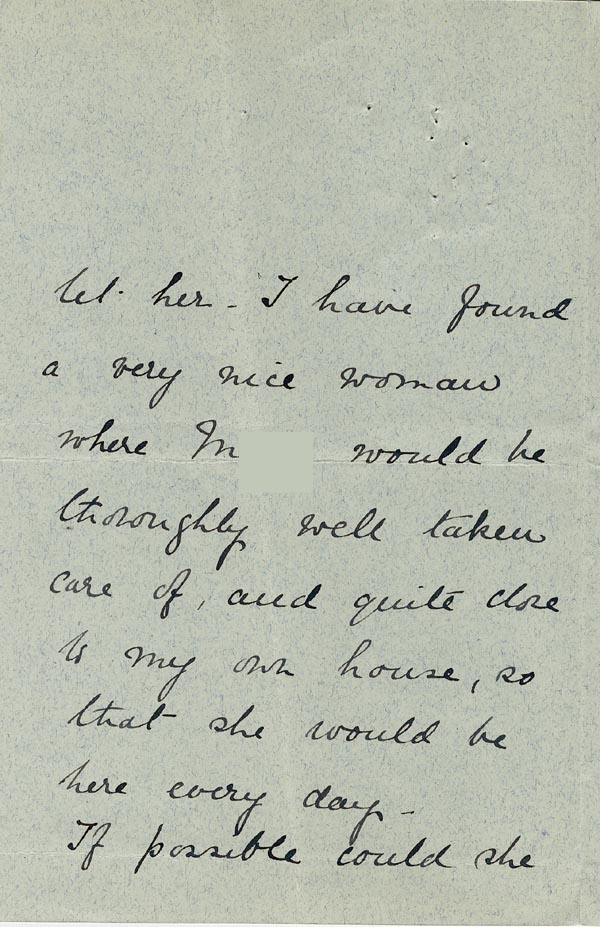 let her - I have found
a very nice woman
where M would be
thoroughly well taken
care of, and quite close
to my own house, so
that she would be
here every day -
If possible could she